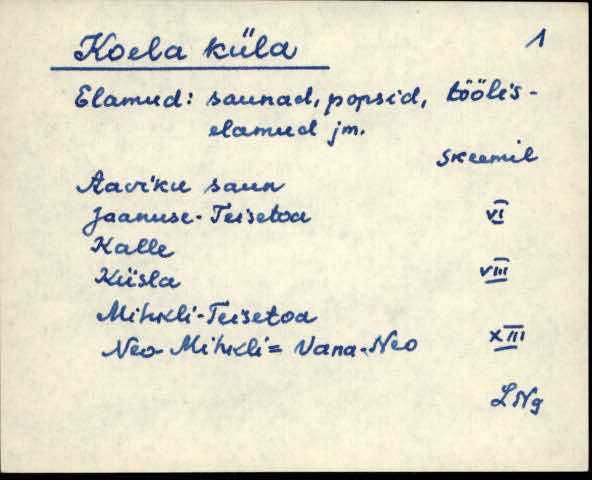 Koela küla 1
Elamud: saunad, popsid, töölis-
elamud jm.
skeemil
Aaviku saun
Jaanuse-Teisetoa VI
Kalle
Küsla VIII
Mihkli-Teisetoa
Neo-Mihkli = Vana-Neo XIII
LNg